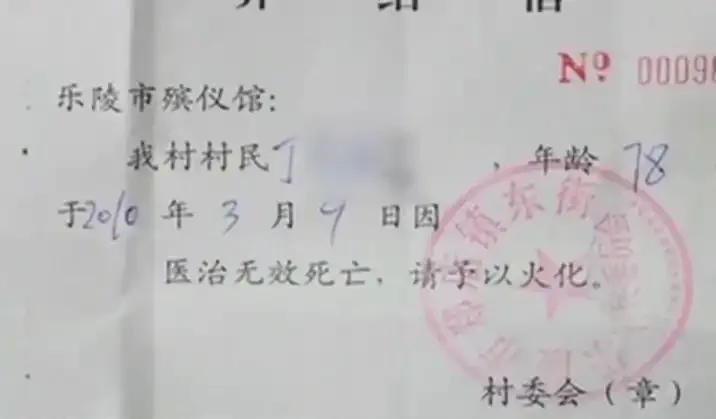 介绍信
Nº 00098
乐陵市殡仪馆:
我村村民丁 , 年龄 78
于2010 年 3 月 9 日因
医治无效死亡，请予以火化。
镇东街
村委会（章）